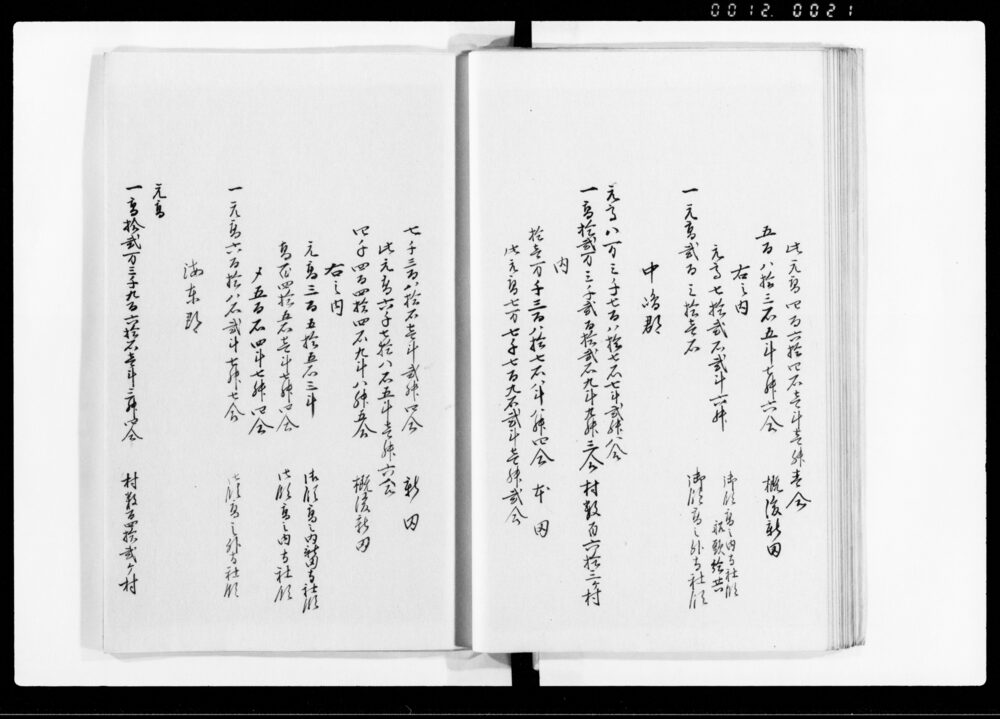 0012. 0021
此元高四百六拾四石壱斗壱升壱合
五百八拾三石五斗七升六合 概後新田
右之内
元高七拾弐石弐斗六升 御領高之内寺社領
一元高弐百三拾壱石 御領高之外寺社領
中嶋郡
元高八万三千七百八拾七石七斗弐升八合
一高拾弐万三千弐百拾弐石九斗九升三合 村数百六拾三ヶ村
内
拾壱万千三百八拾七石八斗八升四合 本田
此元高七万七千七百九石弐斗壱升弐合
七千三百八拾石壱斗弐升四合 新田
此元高六千七拾八石五斗壱升六合
四千四百四拾四石九斗八升五合 概後新田
右之内
元高三百五拾五石三斗 御領高之内新田寺社領
高百四拾五石壱斗七升四合 御領高之内寺社領
〆五百石四斗七升四合
一元高六百拾八石弐斗七升七合 御領高之外寺社領
海東郡
元高
一高拾弐万三千九百六拾石壱斗三升四合 村数百四拾弐ヶ村